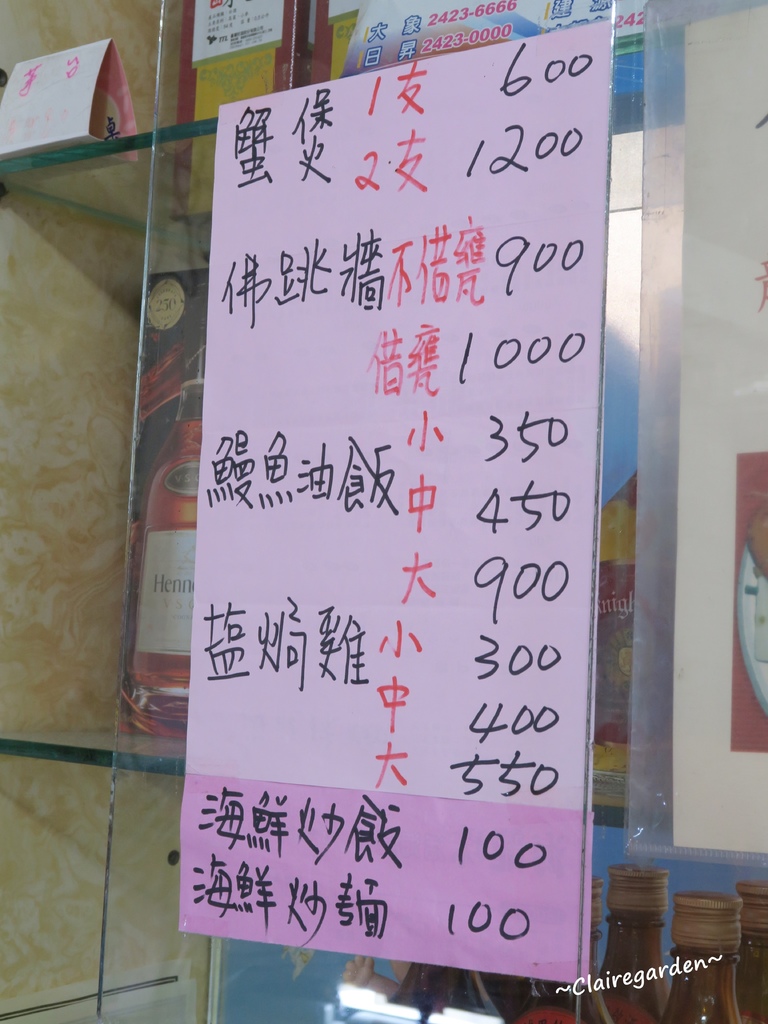 大象 2423-6666
日昇 2423-0000
2423
蟹煲 1支 600
2支 1200
佛跳牆 不借甕 900
借甕 1000
鰻魚油飯 小 350
中 450
大 900
塩焗雞 小 300
中 400
大 550
海鮮炒飯 100
海鮮炒麵 100
250
Henne
V S
~Clairegarden~